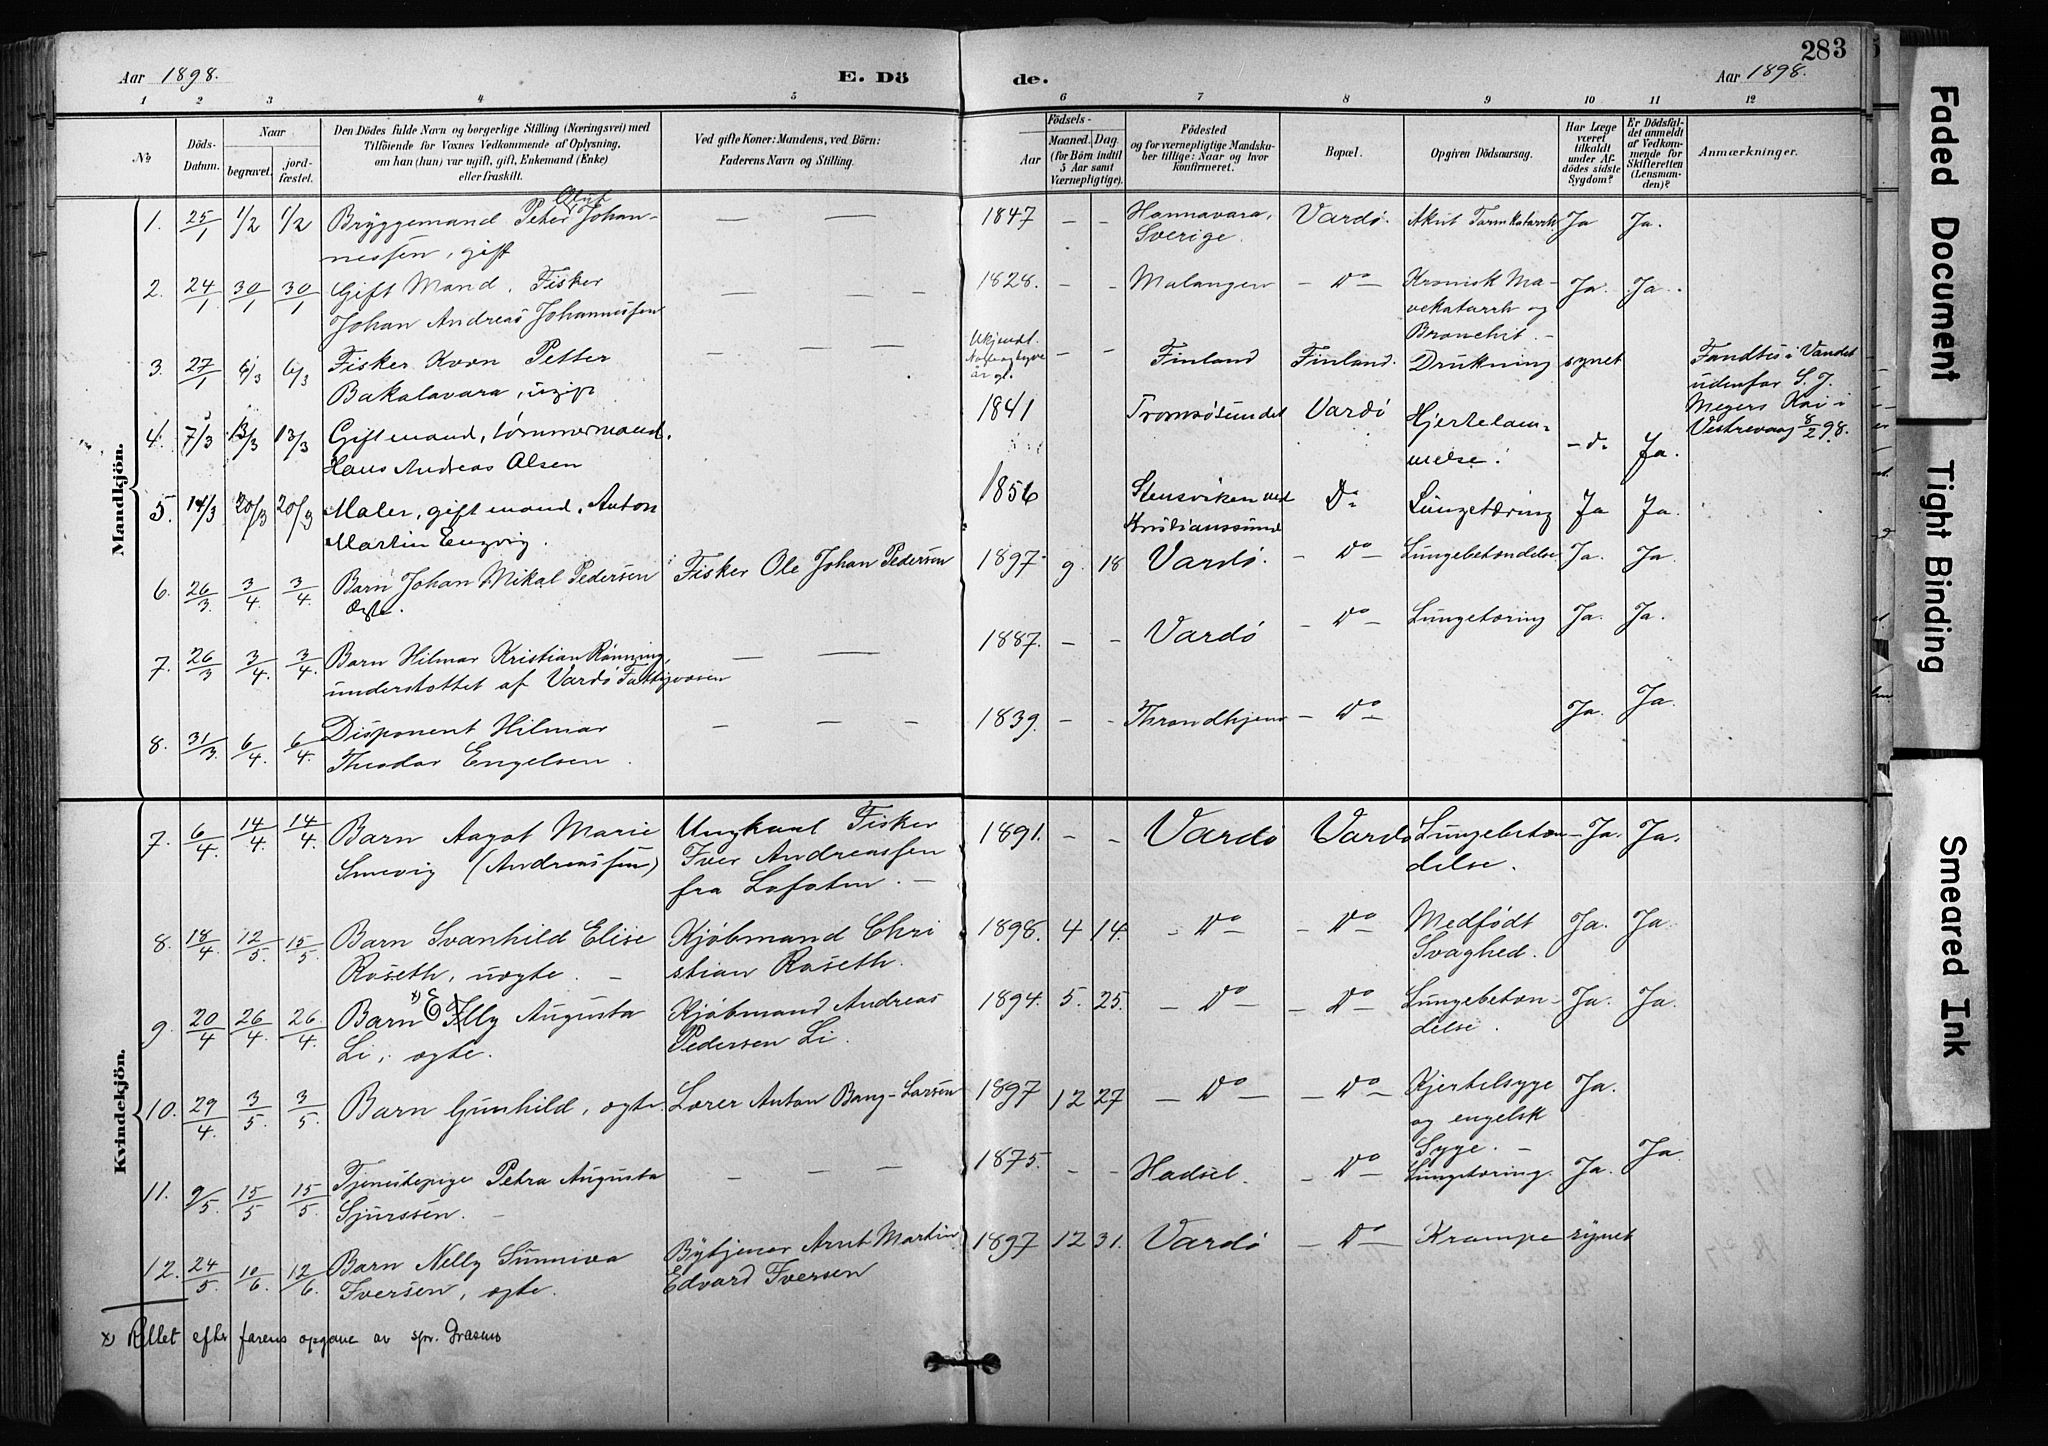 283
Aar 1898.
E. Dö
de.
Aar 1898.
1 2 3 4 5 6 7 8 9 10 11 12
No
Döds-
Datum.
Naar
begravet.
jord-
fæstet.
Den Dödes fulde Navn og borgerlige Stilling (Næringsvei) med
Tilföiende for Voxnes Vedkommende af Oplysning,
om han (hun) var ugift, gift, Enkemand (Enke)
eller fraskilt.
Ved gifte Koner: Mandens, ved Börn:
Faderens Navn og Stilling.
Födsels-
Aar
Maaned. Dag.
(for Börn indtil
5 Aar samt
Værnepligtige).
Födested
og for værnepligtige Mandska-
ber tillige: Naar og hvor
Konfirmeret.
Bopæl.
Opgiven Dödsaarsag.
Har Læge
været
tilkaldt
under Af-
dödes sidste
Sygdom?
Er Dödsfal-
det anmeldt
af Vedkom-
mende for
Skifteretten
(Lensman-
den)?
Anmærkninger.
Mandkjön.
Oluf
1. 25/1 1/2 1/2 Bryggemand Peter Johan- — — 1847 - - Hannavara, Vardø. Akut Tarmkatarrh Ja Ja.
nessen, gift Sverige.
2. 24/1 30/1 30/1 Gift Mand, Fisker — — — 1828. - - Malangen - Do - Kronisk Ma- Ja. Ja.
Johan Andreas Johannessen vekatarrh og
Bronchit. -
3. 27/1 6/3 6/3 Fisker Kvæn Petter — — — Ukjendt. - - Finland Finland. Drukning synet Fandtes i Vandet
Bakalavara, ugift udenfor S. J.
4. 7/3 13/3 13/3 Gift mand, tømmermand, 1841 Tromsøsundet Vardø Hjertelam- -d- Ja. Meyers Kai i
Hans Andreas Olsen melse. Vestrevaag 8/2 98.
5. 14/3 20/3 20/3 Maler, gift mand, Anton 1856 Stensviken ved Do Lungetæring Ja Ja.
Martin Engvig. Kristianssund
6. 26/3 3/4 3/4 Barn Johan Mikal Pedersen Fisker Ole Johan Pedersen 1897. 9. 18 Vardø. - Do - Lungebetændelse Ja. Ja.
Ægte.
7. 26/3 3/4 3/4 Barn Hilmar Kristian Rønning, — — 1887. - - Vardø - Do - Lungetæring Ja. Ja.
understøttet af Vardø Fattigvæsen
8. 31/3 6/4 6/4 Disponent Hilmar - - - 1839. - - Throndhjem - Do - Ja. Ja.
Theodor Engelsen.
Kvindekjön.
7. 6/4 14/4 14/4 Barn Aagot Marie Ungkarl Fisker 1891. - - Vardø Vardø Lungebetæn- Ja. Ja.
Snevig (Andreassen) Iver Andreassen delse.
fra Lofoten. -
8. 18/4 12/5 15/5 Barn Svanhild Elise Kjøbmand Chri 1898. 4 14. - Do - - Do - Medfødt Ja. Ja.
Roseth, uægte. - stian Roseth. Svaghed.
9. 20/4 26/4 26/4 Barn x) Elly Augusta Kjøbmand Andreas 1894. 5. 25. - Do - - Do - Lungebetæn- Ja. Ja.
Li, ægte. Pedersen Li. delse.
10. 29/4 3/5 3/5 Barn Gunhild, ægte. Lærer Anton Bang-Larsen 1897 12 27 - Do - - Do - Kjertelsyge Ja.
og engelsk
Syge. -
11. 9/5 15/5 15/5 Tjenestepige Petra Augusta - - - 1875. - - Hadsel. - Do - Lungetæring. Ja. Ja.
Sjurssen. -
12. 24/5 10/6 12/6 Barn Nelly Sunniva Bytjener Arnt Martin 1897 12 31. Vardø - Do - Krampe synet
Iversen, ægte. Edvard Iversen
x) Rettet efter farens opgave av spr.
Faded Document
Tight Binding
Smeared Ink